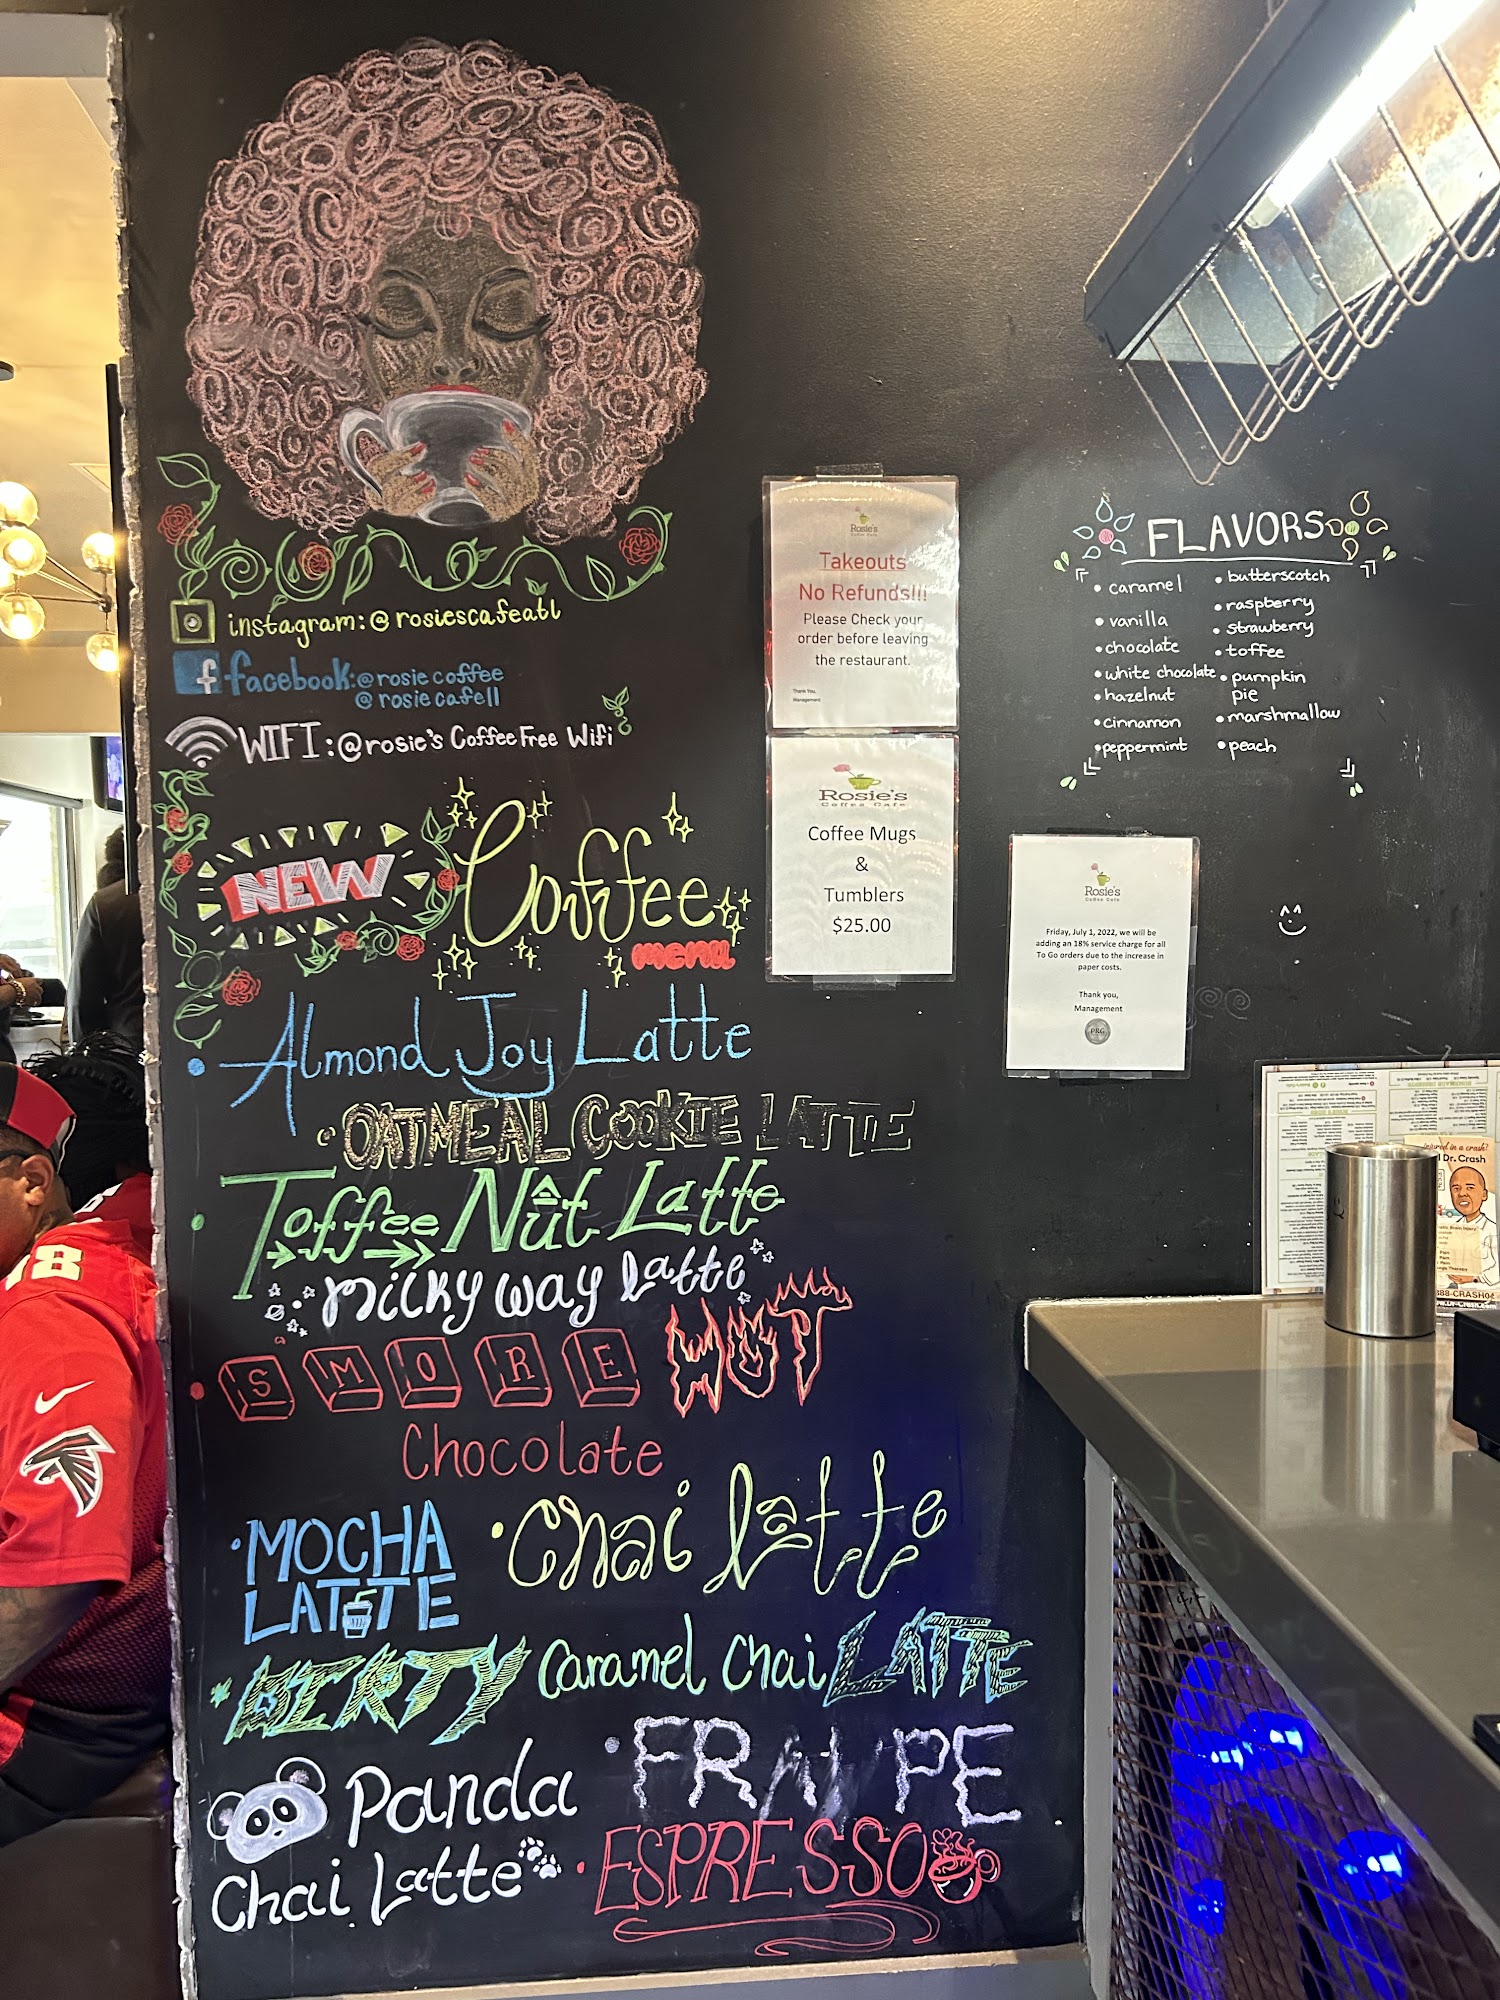 instagram:@rosiescafeatl
f facebook:@rosiecoffee
@rosiecafell
WIFI:@rosie's Coffee Free Wifi
NEW Coffee
menu
• Almond Joy Latte
• OATMEAL COOKIE LATTE
• Toffee Nut Latte
• Milky way latte
• SMORE HOT
Chocolate
• MOCHA
LATTE
• Chai latte
• DIRTY Caramel Chai LATTE
Panda
Chai Latte
• FRAPPE
• ESPRESSO
Rosie's
Coffee Cafe
Takeouts
No Refunds!!!
Please Check your
order before leaving
the restaurant.
Thank You,
Management
Rosie's
Coffee Cafe
Coffee Mugs
&
Tumblers
$25.00
FLAVORS
• caramel
• vanilla
• chocolate
• white chocolate
• hazelnut
• cinnamon
• peppermint
• butterscotch
• raspberry
• strawberry
• toffee
• pumpkin
pie
• marshmallow
• peach
Rosie's
Coffee Cafe
Friday, July 1, 2022, we will be
adding an 18% service charge for all
To Go orders due to the increase in
paper costs.
Thank you,
Management
PRG
injured in a crash?
Dr. Crash